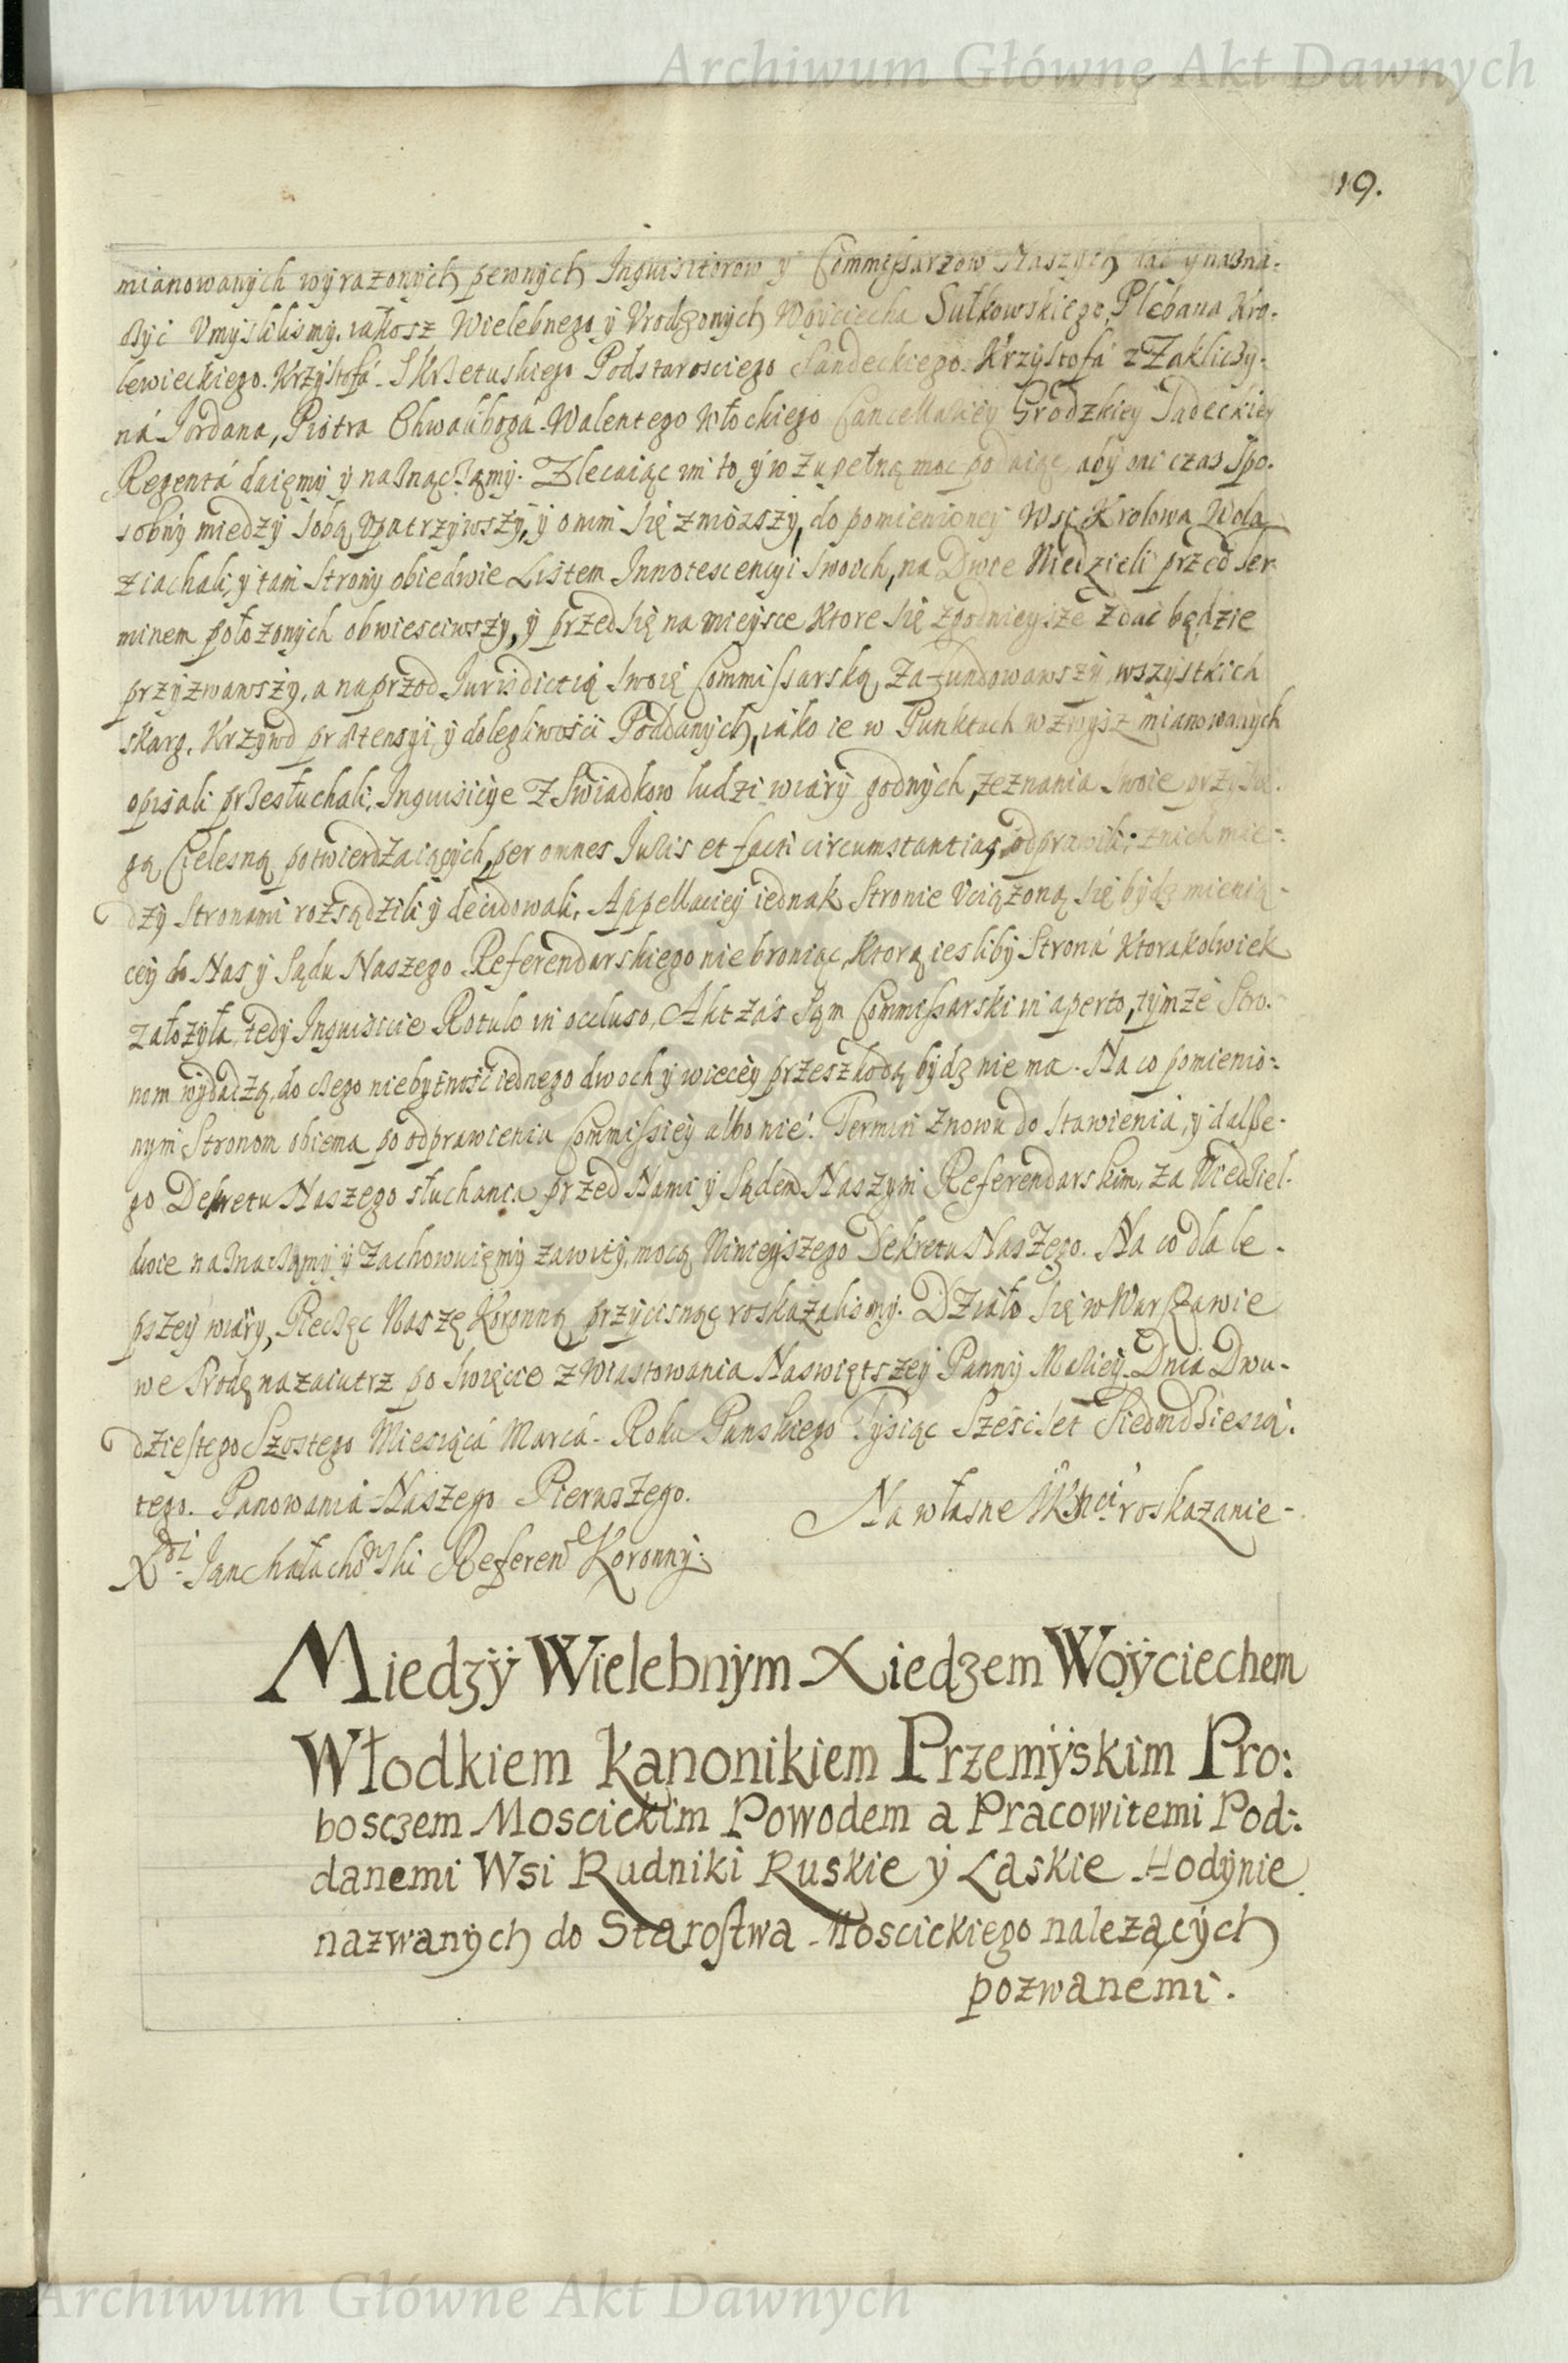 Archiwum Główne Akt Dawnych
19.
mianowanych wyrazonych pewnych Inquisitorow y Commissarzow Naszych dac y nazna-
czyc Vmyslilismy. iakosz Wielebnego y Vrodzonych Woyciecha Sułkowskiego, Plebana Kro-
lewieckiego. Krzysztofá Skrzetuskiego Podstarosciego Sandeckiego. Krzysztofá z Zakliczy-
ná Jordana, Piotra Chwaliboga Walentego Włockiego Cancellariey Grodzkiey Sadeckiey
Regentá daięmy y naznaczamy. Zlecaiąc im to y w zupełną moc podaiąc, aby oni czas spo-
sobny miedzy sobą upatrzywszy, y o nim się zniozszy, do pomienioney Wsi Krolowa Wola
ziachali, y tam Strony obiedwie Listem Innotescencyi swoich, na Dwie Niedzieli przed ter-
minem położonych obwiesciwszy, y przed się na mieysce ktore się zgodnieysze zdać będzie
przyzwawszy, a naprzod Jurisdictią swoię Commissarską zafundowawszy, wszystkich
skarg, Krzywd prætensyi, y dolegliwości Poddanych, iako ie w Punktach wzwysz mianowanych
opisali przesłuchali, Inquisicye z Swiadkow ludzi wiary godnych, zeznania swoie przysię-
gą Cielesną potwierdzaiących, per omnes Juris et facti circumstantias, odprawili; z nich mie-
dzy Stronami rozsądzili y decidowali, Appellaciey iednak Stronie Vciążoną się bydz mienią-
cey do Nas y Sądu Naszego Referendarskiego nie broniąc, ktorą iesliby Stroná ktorakolwiek
założyła, tedy Inquisicie Rotulo in occluso, Akt zaś sąm Commissarski in aperto, tymże Stro-
nom wydadzą, do czego niebytność iednego dwoch y wiecey przeszkodą bydz nie ma. Na co pomienio-
nym Stronom obiema po odprawieniu Commissiey albo nie. Termin znowu do stawienia, y dalsze-
go Dekretu Naszego słuchania przed Nami y Sądem Naszym Referendarskim, za Niedziel
dwie naznaczamy y zachowuięmy zawity, mocą Ninieyszego Dekretu Naszego. Na co dla le-
pszey wiary, Pieczęc Naszę Koronną przycisnąć roskazalismy. Działo się w Warszawie
we Srodę nazaiutrz po święcie Zwiastowania Naswiętszey Panny Mariey Dnia Dwu-
dziestego Szostego Miesiącá Marcá Roku Panskiego Tysiąc Szesćset Siedmdziesią-
tego. Panowania Naszego Pierwszego.
Na własne JKMci roskazanie
Xdz Jan Małachowski Referend Koronny.
Miedzy Wielebnym Xiedzem Woyciechem
Włodkiem Kanonikiem Przemyskim Pro:
bosczem Moscickim Powodem a Pracowitemi Pod:
danemi Wsi Rudniki Ruskie y Laskie Hodynie
nazwanych do Starostwa Moscickiego nalezących
pozwanemi.
Archiwum Główne Akt Dawnych